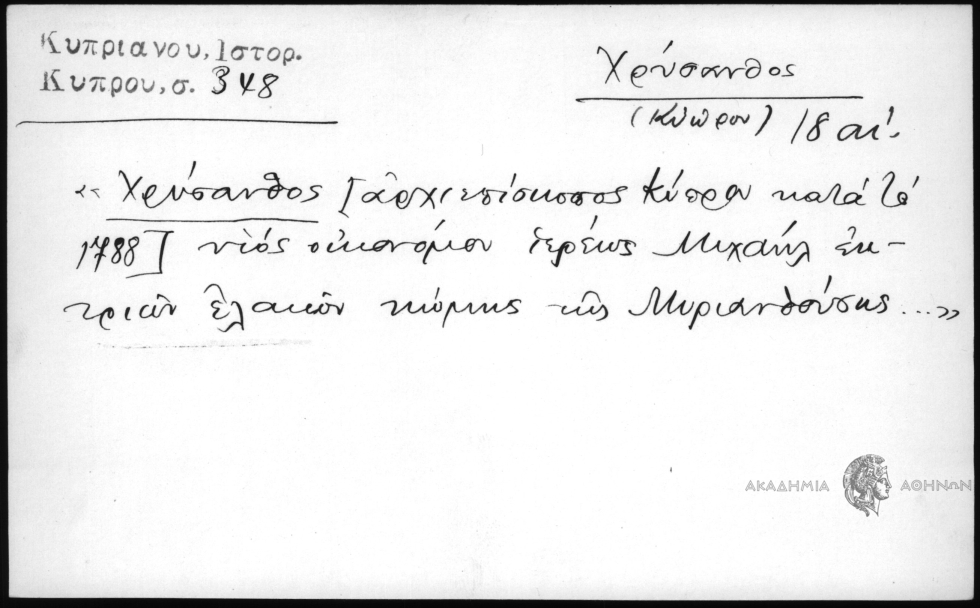 Κυπριανου, Ιστορ.
Κυπρου, σ. 348
Χρύσανθος
(Κύπρου) 18 αἰ.
«Χρύσανθος [ἀρχιεπίσκοπος Κύπρου κατὰ τὸ
1788] υἱὸς οἰκονόμου ἱερέως Μιχαὴλ ἐκ
τριῶν ἐλαιῶν κώμης τῆς Μυριανθούσης...»
ΑΚΑΔΗΜΙΑ ΑΘΗΝΩΝ